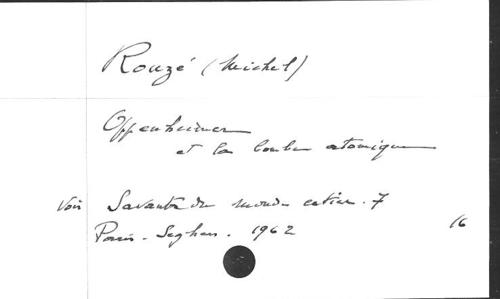 Rouzé (Michel)
Oppenheimer
et la bombe atomique
Voir Savants du monde entier. 7
Paris - Seghers. 1962
16